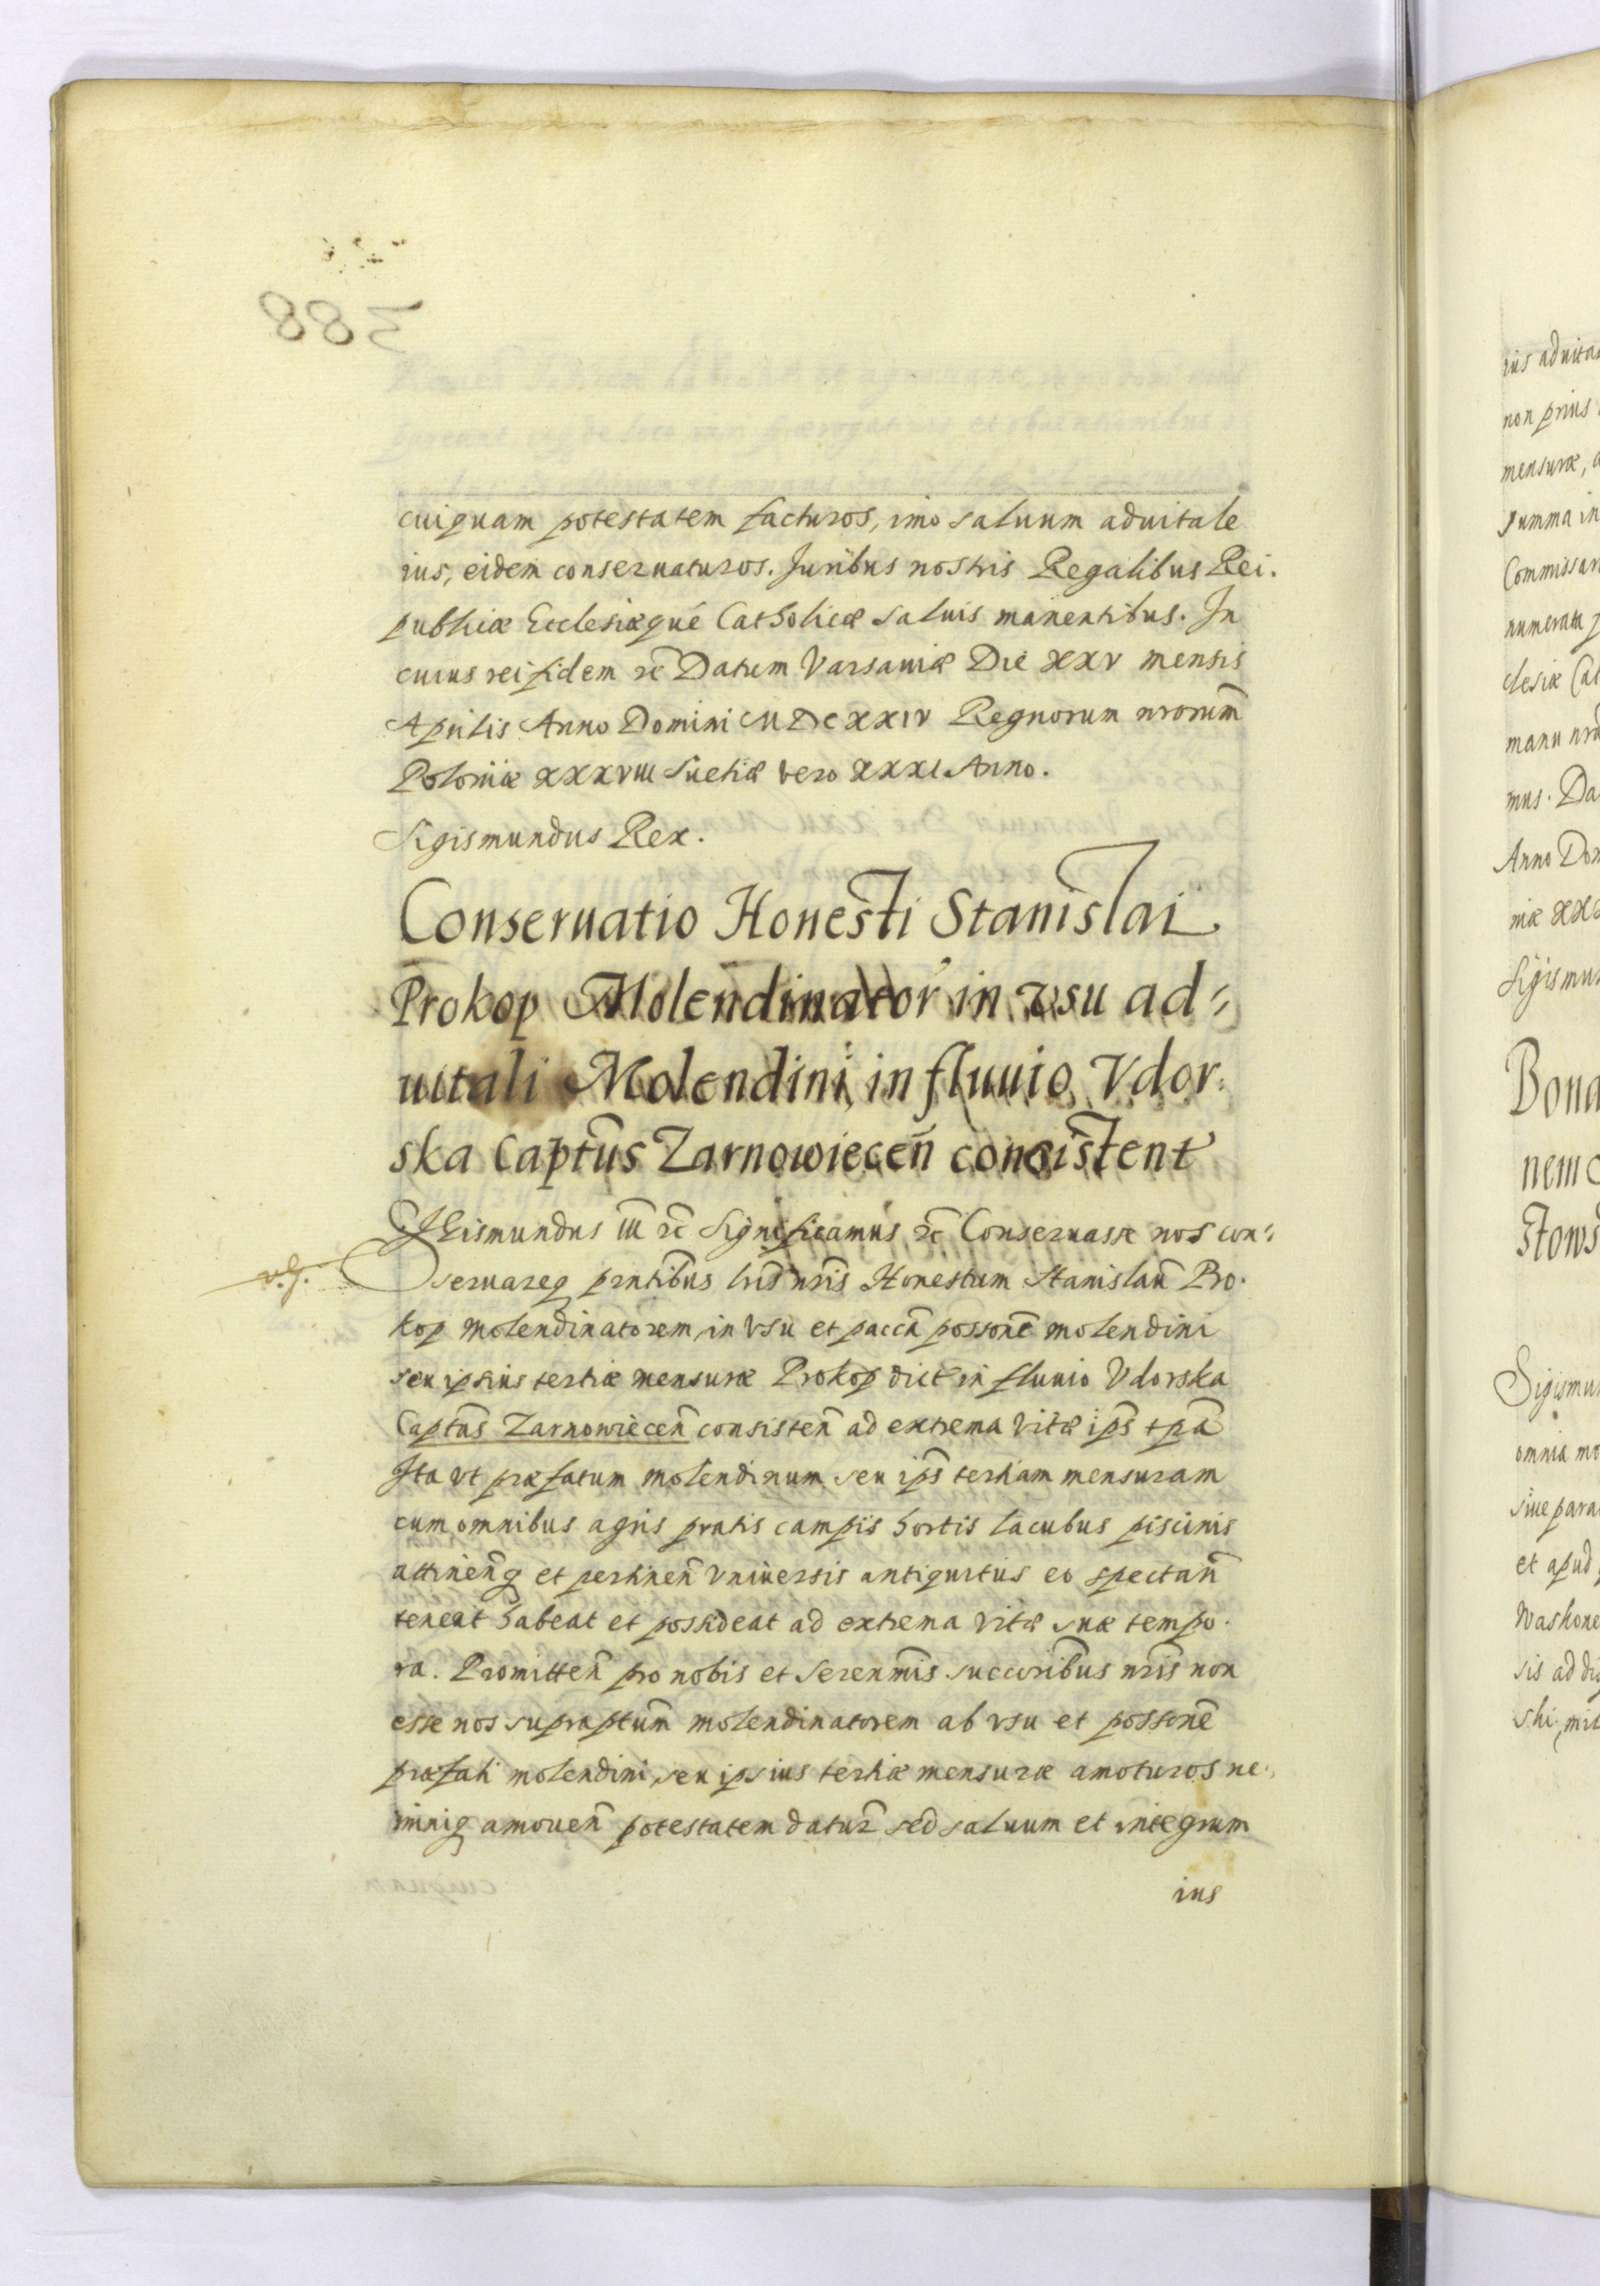 cuiquam potestatem facturos, imo saluum aduitale
ius, eidem conseruaturos. Juribus nostris Regalibus Rei.
publicæ Ecclesiæqué Catholicæ saluis manentibus. In
cuius rei fidem etc̃ Datum Varsauiæ Die XXV mensis
Aprilis Anno Domini MDCXXIV Regnorum nrorum̃
Poloniæ XXXVIII Suetiæ vero XXXI Anno.
Sigismundus Rex.
Conseruatio Honesti Stanislai
Prokop Molendinator in vsu ad=
uitali Molendini in fluuio Vdor.
ska Captũs Zarnowiecen̄ consistent
Sigismundus III etc̃ Significamus etc̃ Conseruasse nos con=
v.g.
seruareq prntibũs lris̃ nris̃ Honestum Stanislaũ Pro.
kop molendinatorem, in vsu et paccã possonẽ molendini
seu ipsius tertiæ mensuræ Prokop dict̃ in fluuio Vdorska
Captñs Zarnowiecen̄ consisten̄ ad extrema vitæ ips̃ tpã
Ita vt præfatum molendinum seu ips̃ tertiam mensuram
cum omnibus agris pratis campis hortis lacubus piscinis
attinen̄q et pertinen̄ vniuersis antiquitus eo spectañ
teneat habeat et possideat ad extrema vitæ suæ tempo.
ra. Promitten̄ pro nobis et Serenm̃is succoribũs nris̃ non
esse nos supraptum̃ molendinatorem ab vsu et possonẽ
præfati molendini, seu ipsius tertiæ mensuræ amoturos ne.
miniq amouen̄ potestatem datur̃ sed saluum et integrum
ius
388
ius aduita
non prius
mensuræ,
summa in
Commissar
numerata
clesiæ Cat
manu nrã
mus. Da
Anno Dom
niæ XXX
Sigismun
Bona
nem
stows
Sigismu
omnia mo
siue para
et apud
Washone
sis ad di
ski, mit